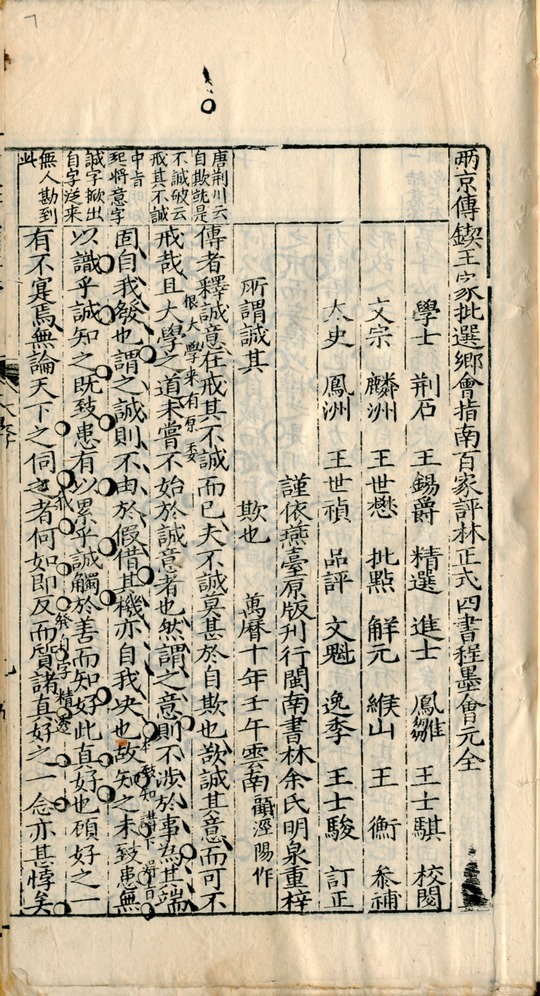 兩京傳鍥王家批選鄉會指南百家評林正式四書程墨會元全
學士 荊石 王錫爵 精選 進士 鳳雛 王士騏 校閱
文宗 麟洲 王世懋 批點 解元 緱山 王衡 叅補
太史 鳳洲 王世禎 品評 文魁 逸季 王士駿 訂正
謹依燕臺原版刊行閩南書林余氏明泉重梓
所謂誠其 欺也 萬曆十年壬午雲南 顧涇陽作
唐荊川云
自欺就是
不誠破云
戒其不誠
中旨
起將意字
誠字掀出
自字泛来
無人勘到
此
傳者釋誠意在戒其不誠而已夫不誠莫甚於自欺也欲誠其意而可不
根大學来有原委
戒哉且大學之道未嘗不始於誠意者也然謂之意則不涉於事為其端
固自我發也謂之誠則不由於假借其機亦自我决也故知之未致患無
以識乎誠知之既致患有以累乎誠觸於善而知好此真好也碩好之一
有不寔焉無論天下之伺之者何如即反而質諸真好之一念亦其悖矣